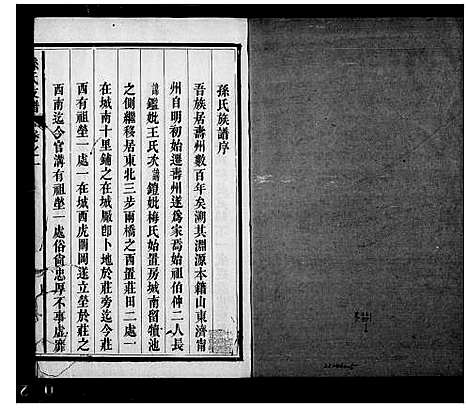 孫氏族譜序
吾族居壽州數百年矣溯其淵源本籍山東濟甯
州自明初始遷壽州遂爲家焉始祖伯仲二人長
諱鑑妣王氏次諱鎧妣梅氏始置房城南留犢池
之側繼移居東北三步兩橋之西置莊田二處一
在城南十里鋪之在城厰卽卜地於莊旁迄今莊
西有祖塋一處一在城西虎闘岡遂立塋於莊之
西南迄今官溝有祖塋一處俗尙忠厚不事虛靡
孫氏族譜